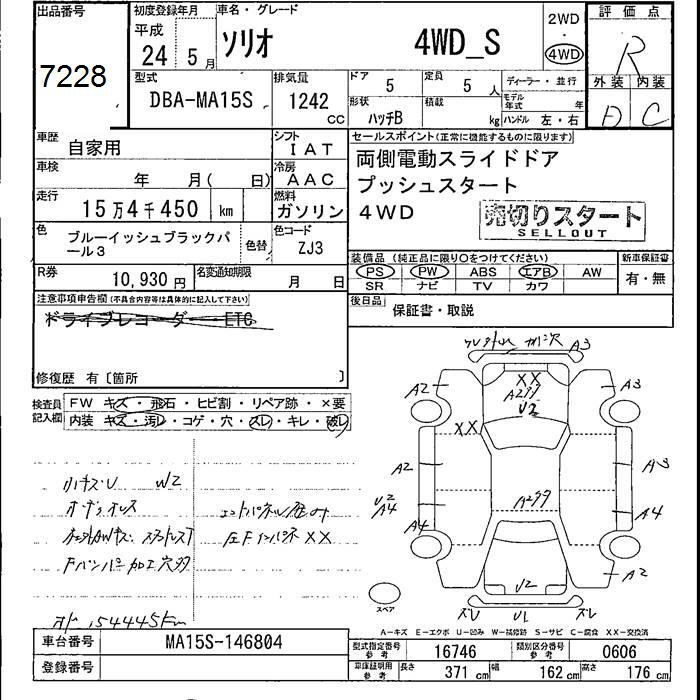 出品番号
7228
初度登録年月
平成
24 5月
車名・グレード
ソリオ 4WD_S
2WD
・
4WD
評価点
R
外装 内装
D C
型式
DBA-MA15S
排気量
1242 CC
ドア 5
定員 5 人
形状 ハッチB
積載 kg
ディーラー・並行
モデル年式 年
ハンドル 左・右
車歴 自家用
シフト IAT
車検 年 月( 日)
冷房 AAC
走行 15万4千450 km
燃料 ガソリン
色 ブルーイッシュブラックパール3
色替
色コード ZJ3
R券 10,930円
名変通知期限 月 日
セールスポイント(正常に機能するものに限ります)
両側電動スライドドア
プッシュスタート
4WD
売切りスタート
SELLOUT
装備品 (純正品に限り○をつけてください)
PS PW ABS エアB AW
SR ナビ TV カワ
新車保証書
有・無
後日品 保証書・取説
注意事項申告欄(不具合内容等は具体的に記入して下さい)
ドライブレコーダー ETC
修復歴 有〔箇所 〕
検査員記入欄
FW キズ・飛石・ヒビ割・リペア跡・×要
内装 キズ・汚レ・コゲ・穴・スレ・キレ・破レ
A3
A2 XX A3
A299
U2
XX
A2 A3
A299
U2
A4 A4
A4
A2
U2
スレ U1 スレ
スペア
リハキズ・U W2
Fバンパー加工穴多
左Fインパネ XX
154445km
A-キズ E-エクボ U-凹み W-補修跡 S-サビ C-腐食 XX-交換済
車台番号 MA15S-146804
登録番号
型式指定番号 参考 16746
類別区分番号 参考 0606
車庫証明用 参考 長さ 371 cm 幅 162 cm 高さ 176 cm